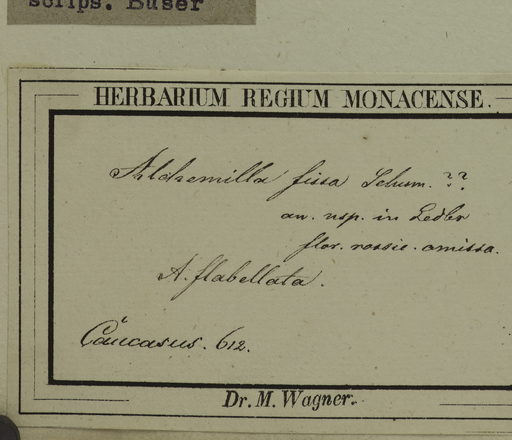 scrips. Buser
HERBARIUM REGIUM MONACENSE.
Alchemilla fissa Schum. ??
an. nsp. in Ledbr
flor. rossic. omissa.
A. flabellata.
Caucasus. 612.
Dr. M. Wagner.